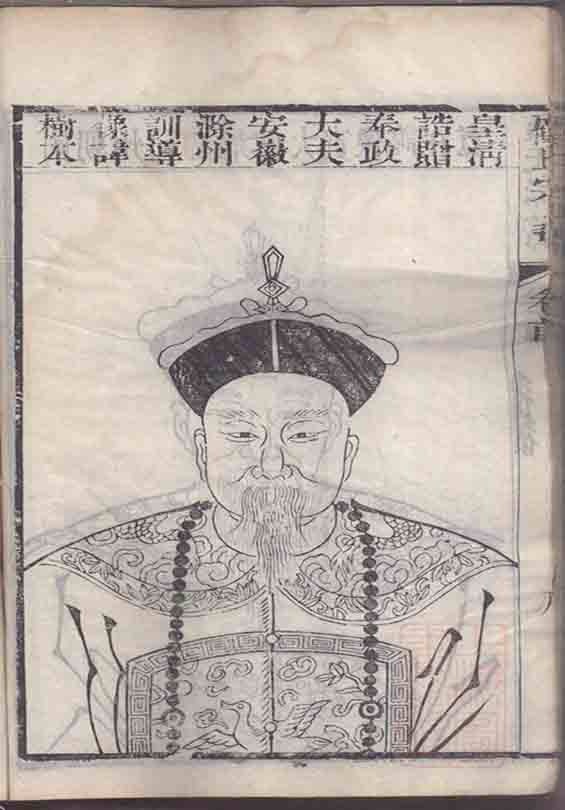 氏宗譜
皇清
誥贈
奉政
大夫
安徽
滁州
訓導
諱
樹本